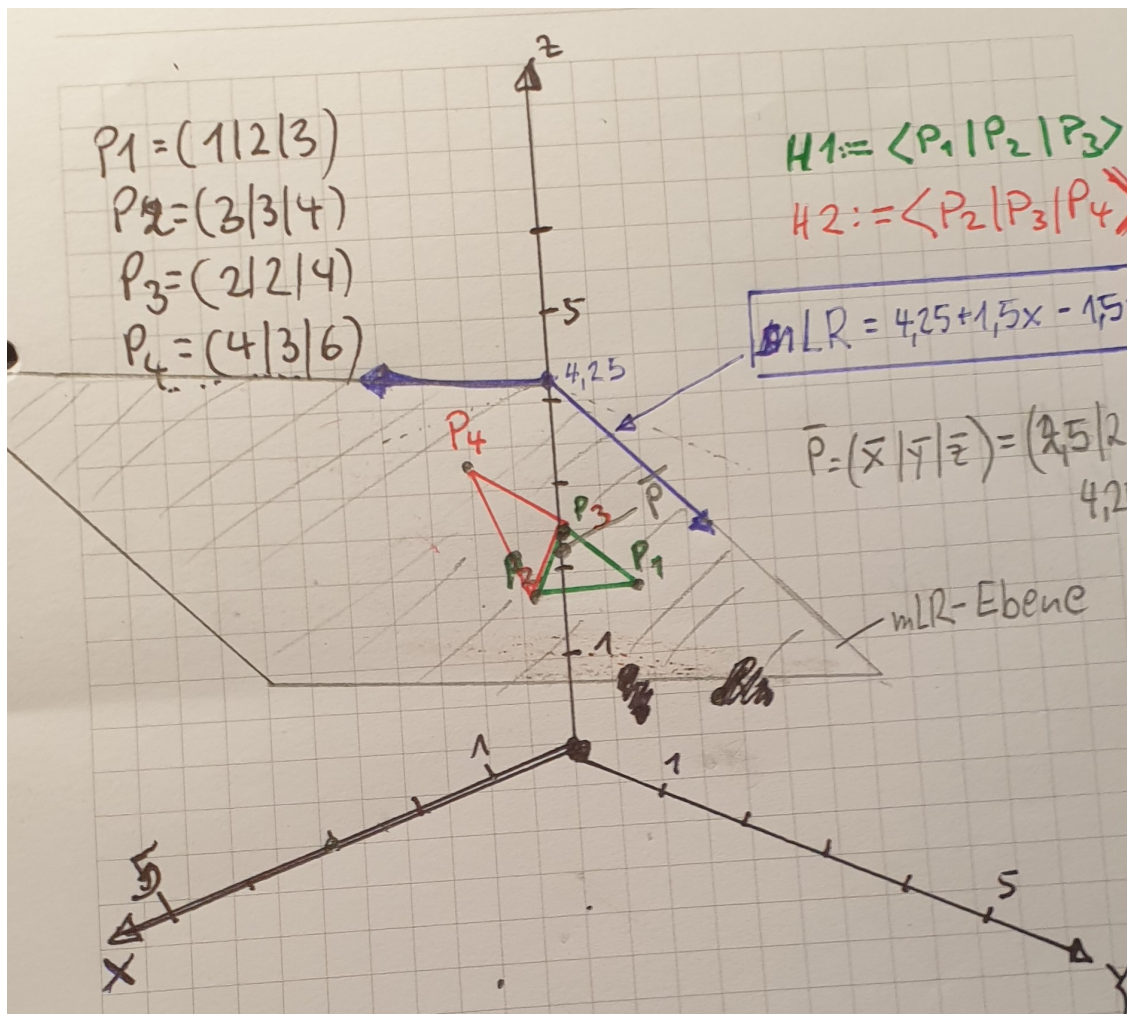 z
P1 = (1|2|3)
P2 = (3|3|4)
P3 = (2|2|4)
P4 = (4|3|6)
H1 := <P1|P2|P3>
H2 := <P2|P3|P4>
5
mLR = 4,25+1,5x - 1,5
4,25
P̄ = (x̄|ȳ|z̄) = (2,5|2
4,2
P4
P3
P̄
P2
P1
mLR-Ebene
1
1
1
5
5
X
Y